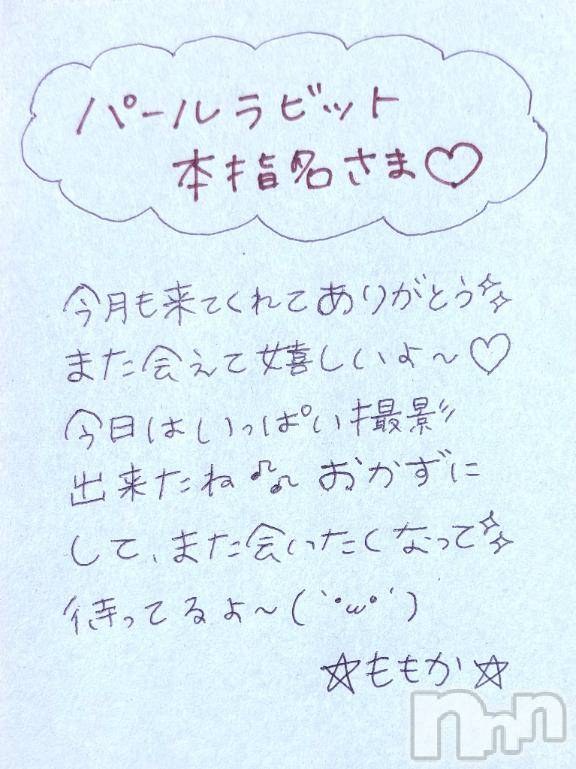 パールラビット
本指名さま♡
今月も来てくれてありがとう✨
また会えて嬉しいよ〜♡
今日はいっぱい撮影
出来たね♪♪ おかずに
して、また会いたくなって✨
待ってるよ〜(｀°ω°´)
☆ももか☆
nnn